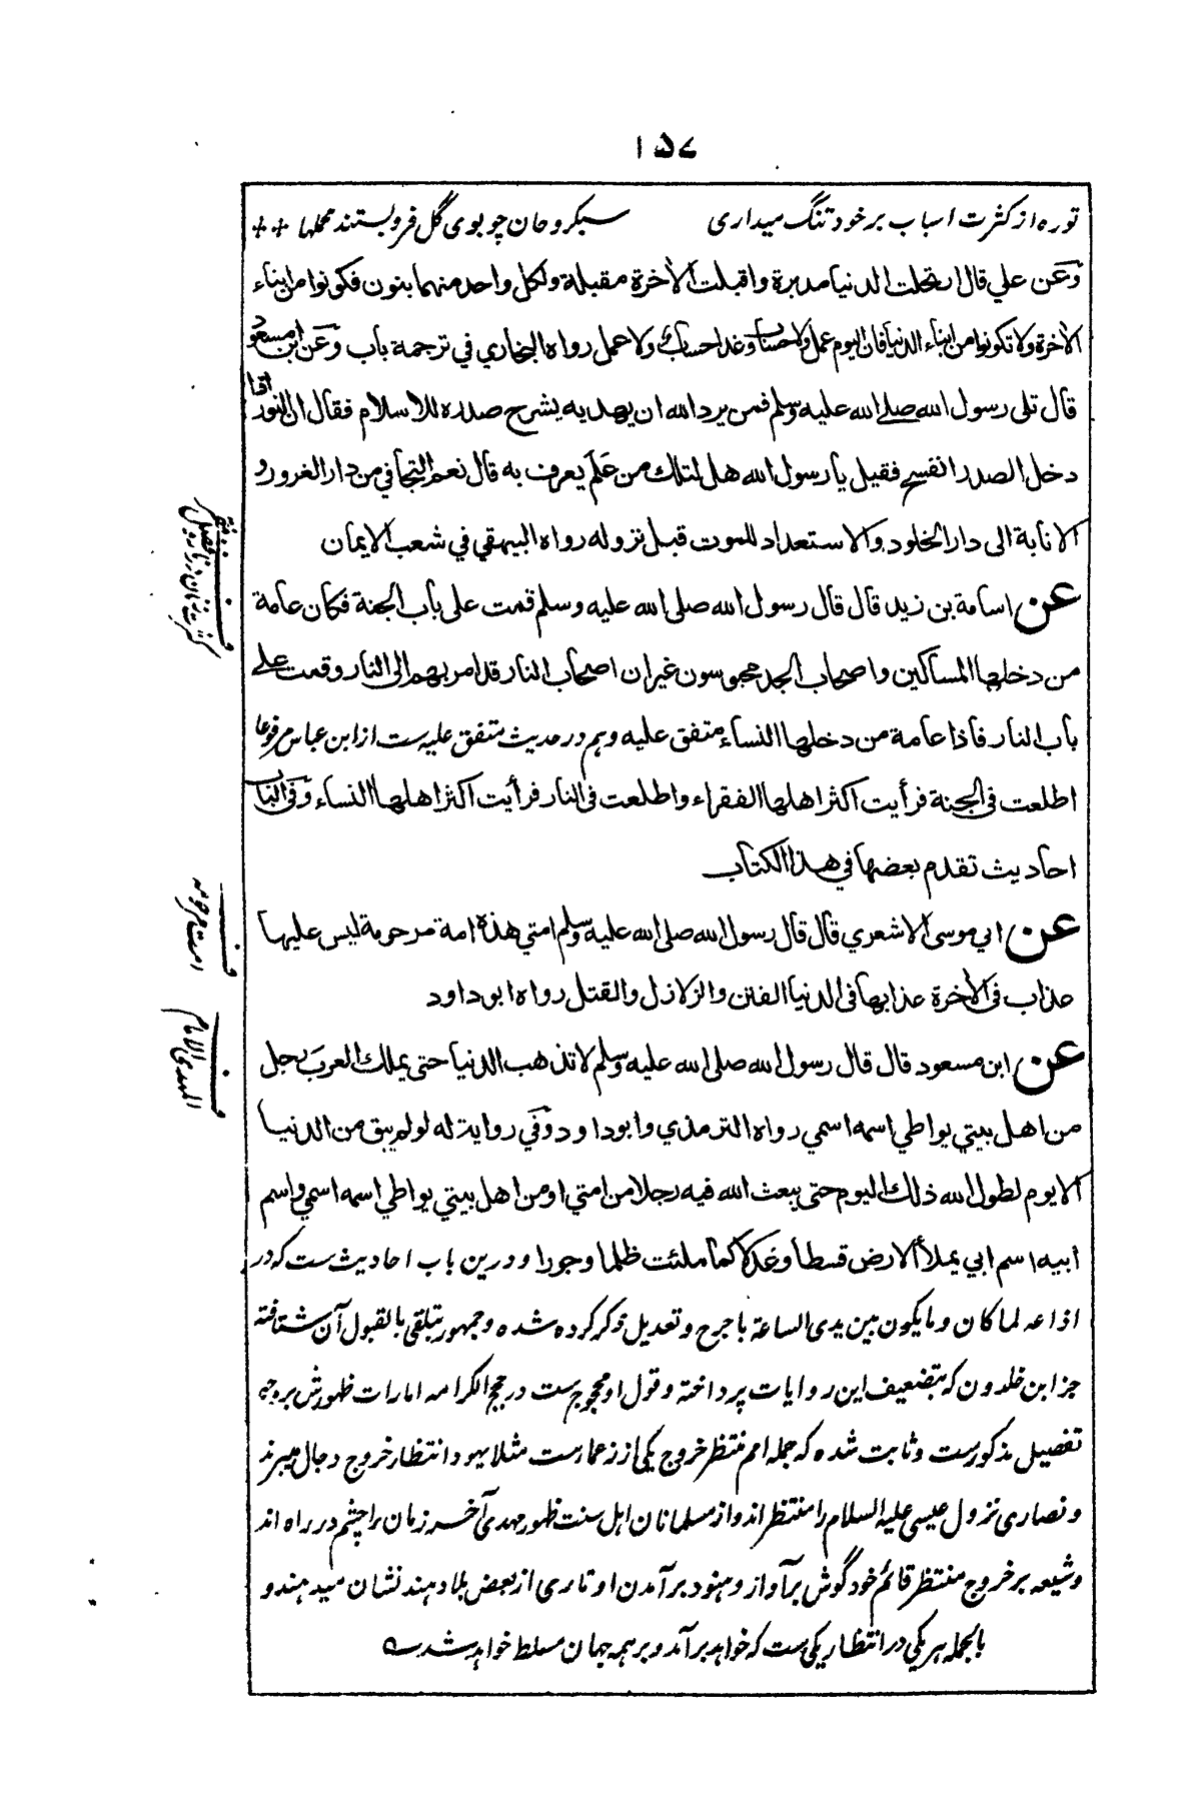 ١٥٧
تو ره از کثرت اسباب بر خود تنگ میداری سبکروحان چو بوی گل فروبستند محملها
وعن علي قال ارتحلت الدنيا مدبرة واقبلت الاخرة مقبلة ولكل واحد منهما بنون فكونوا من ابناء
الاخرة ولا تكونوا من ابناء الدنيا فان اليوم عمل ولا حساب وغدا حساب ولا عمل رواه البخاري في ترجمة باب وعن ابن مسعود
قال تلى رسول الله صلى الله عليه وسلم فمن يرد الله ان يهديه يشرح صدره للاسلام فقال ان النور اذا
دخل الصدر انفسح فقيل يا رسول الله هل لتلك من علم يعرف به قال نعم التجافي من دار الغرور و
الانابة الى دار الخلود والاستعداد للموت قبل نزوله رواه البيهقي في شعب الايمان
عن اسامة بن زيد قال قال رسول الله صلى الله عليه وسلم قمت على باب الجنة فكان عامة
من دخلها المساكين واصحاب الجد محبوسون غير ان اصحاب النار قد امر بهم الى النار وقمت على
باب النار فاذا عامة من دخلها النساء متفق عليه وہم در حدیث متفق علیه ست از ابن عباس مرفوعا
اطلعت في الجنة فرأيت اكثر اهلها الفقراء واطلعت في النار فرأيت اكثر اهلها النساء وفي الباب
احاديث تقدم بعضها في هذا الكتاب
عن ابي موسى الاشعري قال قال رسول الله صلى الله عليه وسلم امتي هذه امة مرحومة ليس عليها
عذاب في الاخرة عذابها في الدنيا الفتن والزلازل والقتل رواه ابو داود
عن ابن مسعود قال قال رسول الله صلى الله عليه وسلم لا تذهب الدنيا حتى يملك العرب رجل
من اهل بيتي يواطي اسمه اسمي رواه الترمذي وابو داود وفي رواية له لو لم يبق من الدنيا
الا يوم لطول الله ذلك اليوم حتى يبعث الله فيه رجلا من امتي او من اهل بيتي يواطي اسمه اسمي واسم
ابيه اسم ابي يملأ الارض قسطا وعدلا كما ملئت ظلما وجورا ودرین باب احادیث ست که در
اذاعه لما کان وما یکون بین یدی الساعة با جرح و تعدیل ذکر کرده شده و جمهور بتلقی بالقبول آن شتافته
جز ابن خلدون که بتضعیف این روایات پرداخته و قول او محجوج ست در حجج الکرامه امارات ظهورش بروجه
تفصیل مذکورست و ثابت شده که جمله امم منتظر خروج یکی از زعما ست مثلا یهود انتظار خروج دجال میبرند
و نصاری نزول عیسی علیه السلام را منتظر اند و از مسلمانان اهل سنت ظهور مهدی آخر زمان را چشم در راه اند
و شیعه بر خروج منتظر قائم خود گوش بر آواز و هنود بر آمدن اوتاری از بعض بلاد هند نشان میدهند و
بالجمله هر یکی در انتظار یکی ست که خواهد بر آمد و بر همه جهان مسلط خواهد شد
امت مرحومه
المهدی الامام